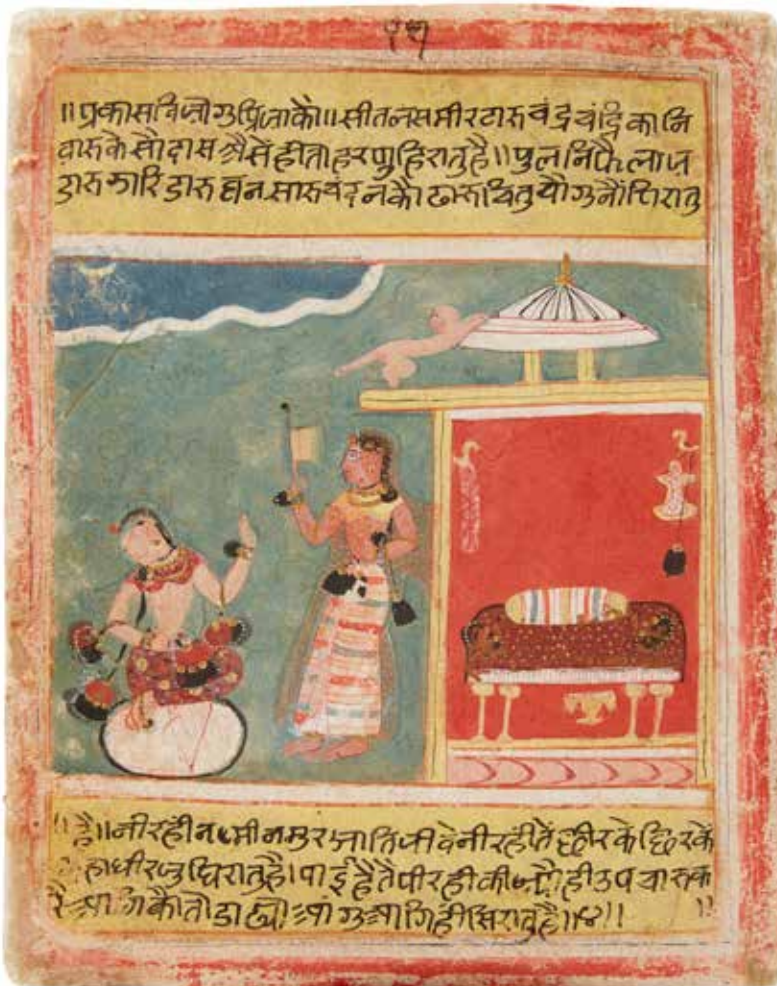 ॥प्रकास वियोगु प्रियाकौ॥सीतल समीर टारु चंद्र चंद्रिका नि
वारु केसौदास ऐसें ही तौ हरषु हिरातु है॥फुलनि फैलाय
डारु झारि डारु घनसारु चंदनकौ ढारु चितु चौगुनौं पिरातु
है॥नीर हीन मीन मुरझाति जीवे नीर ही तें छीर के छिरकें
कहा धीरजु धिरातु है।पाई है तैं पीर ही की उपचारु क
रै आगिकौ तौ डाढ्यौ आंगु आगि ही सिरातु है॥४॥ ॥